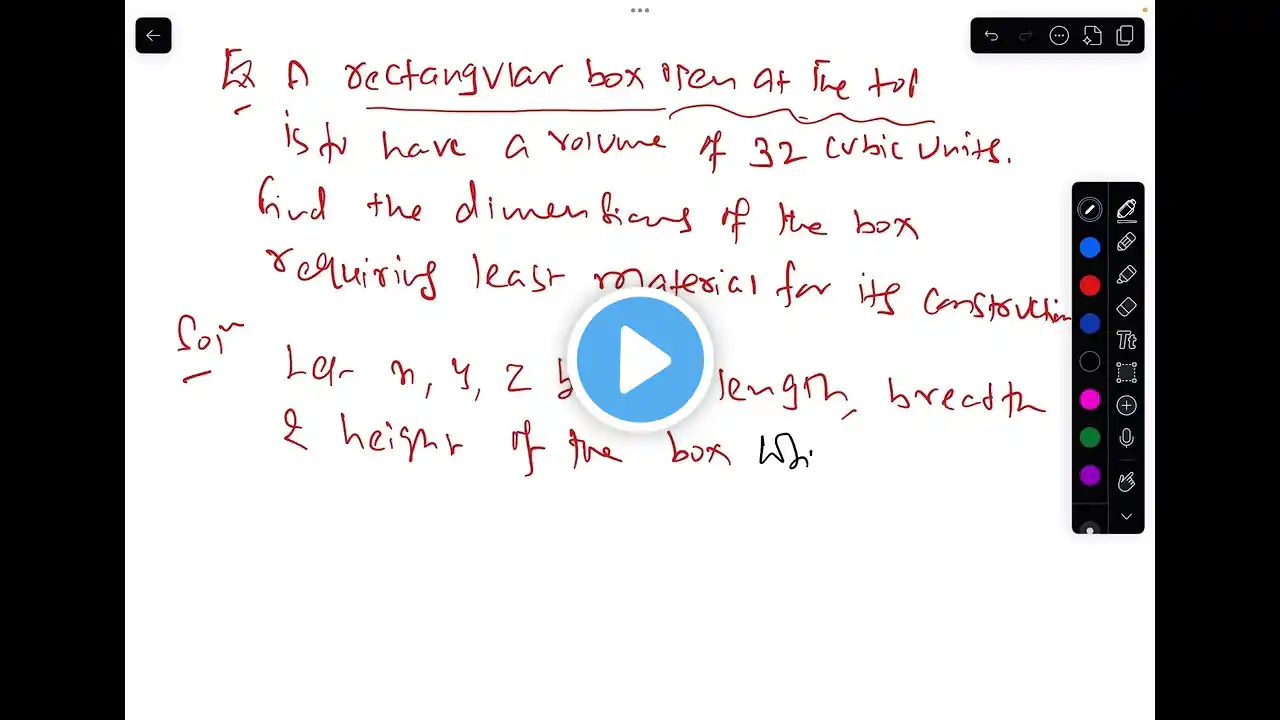 Ex A rectangular box open at the top
is to have a volume of 32 cubic units.
Find the dimensions of the box
requiring least material for its construction
Solⁿ
Let x, y, z length, breadth
& height of the box Whi
Tt